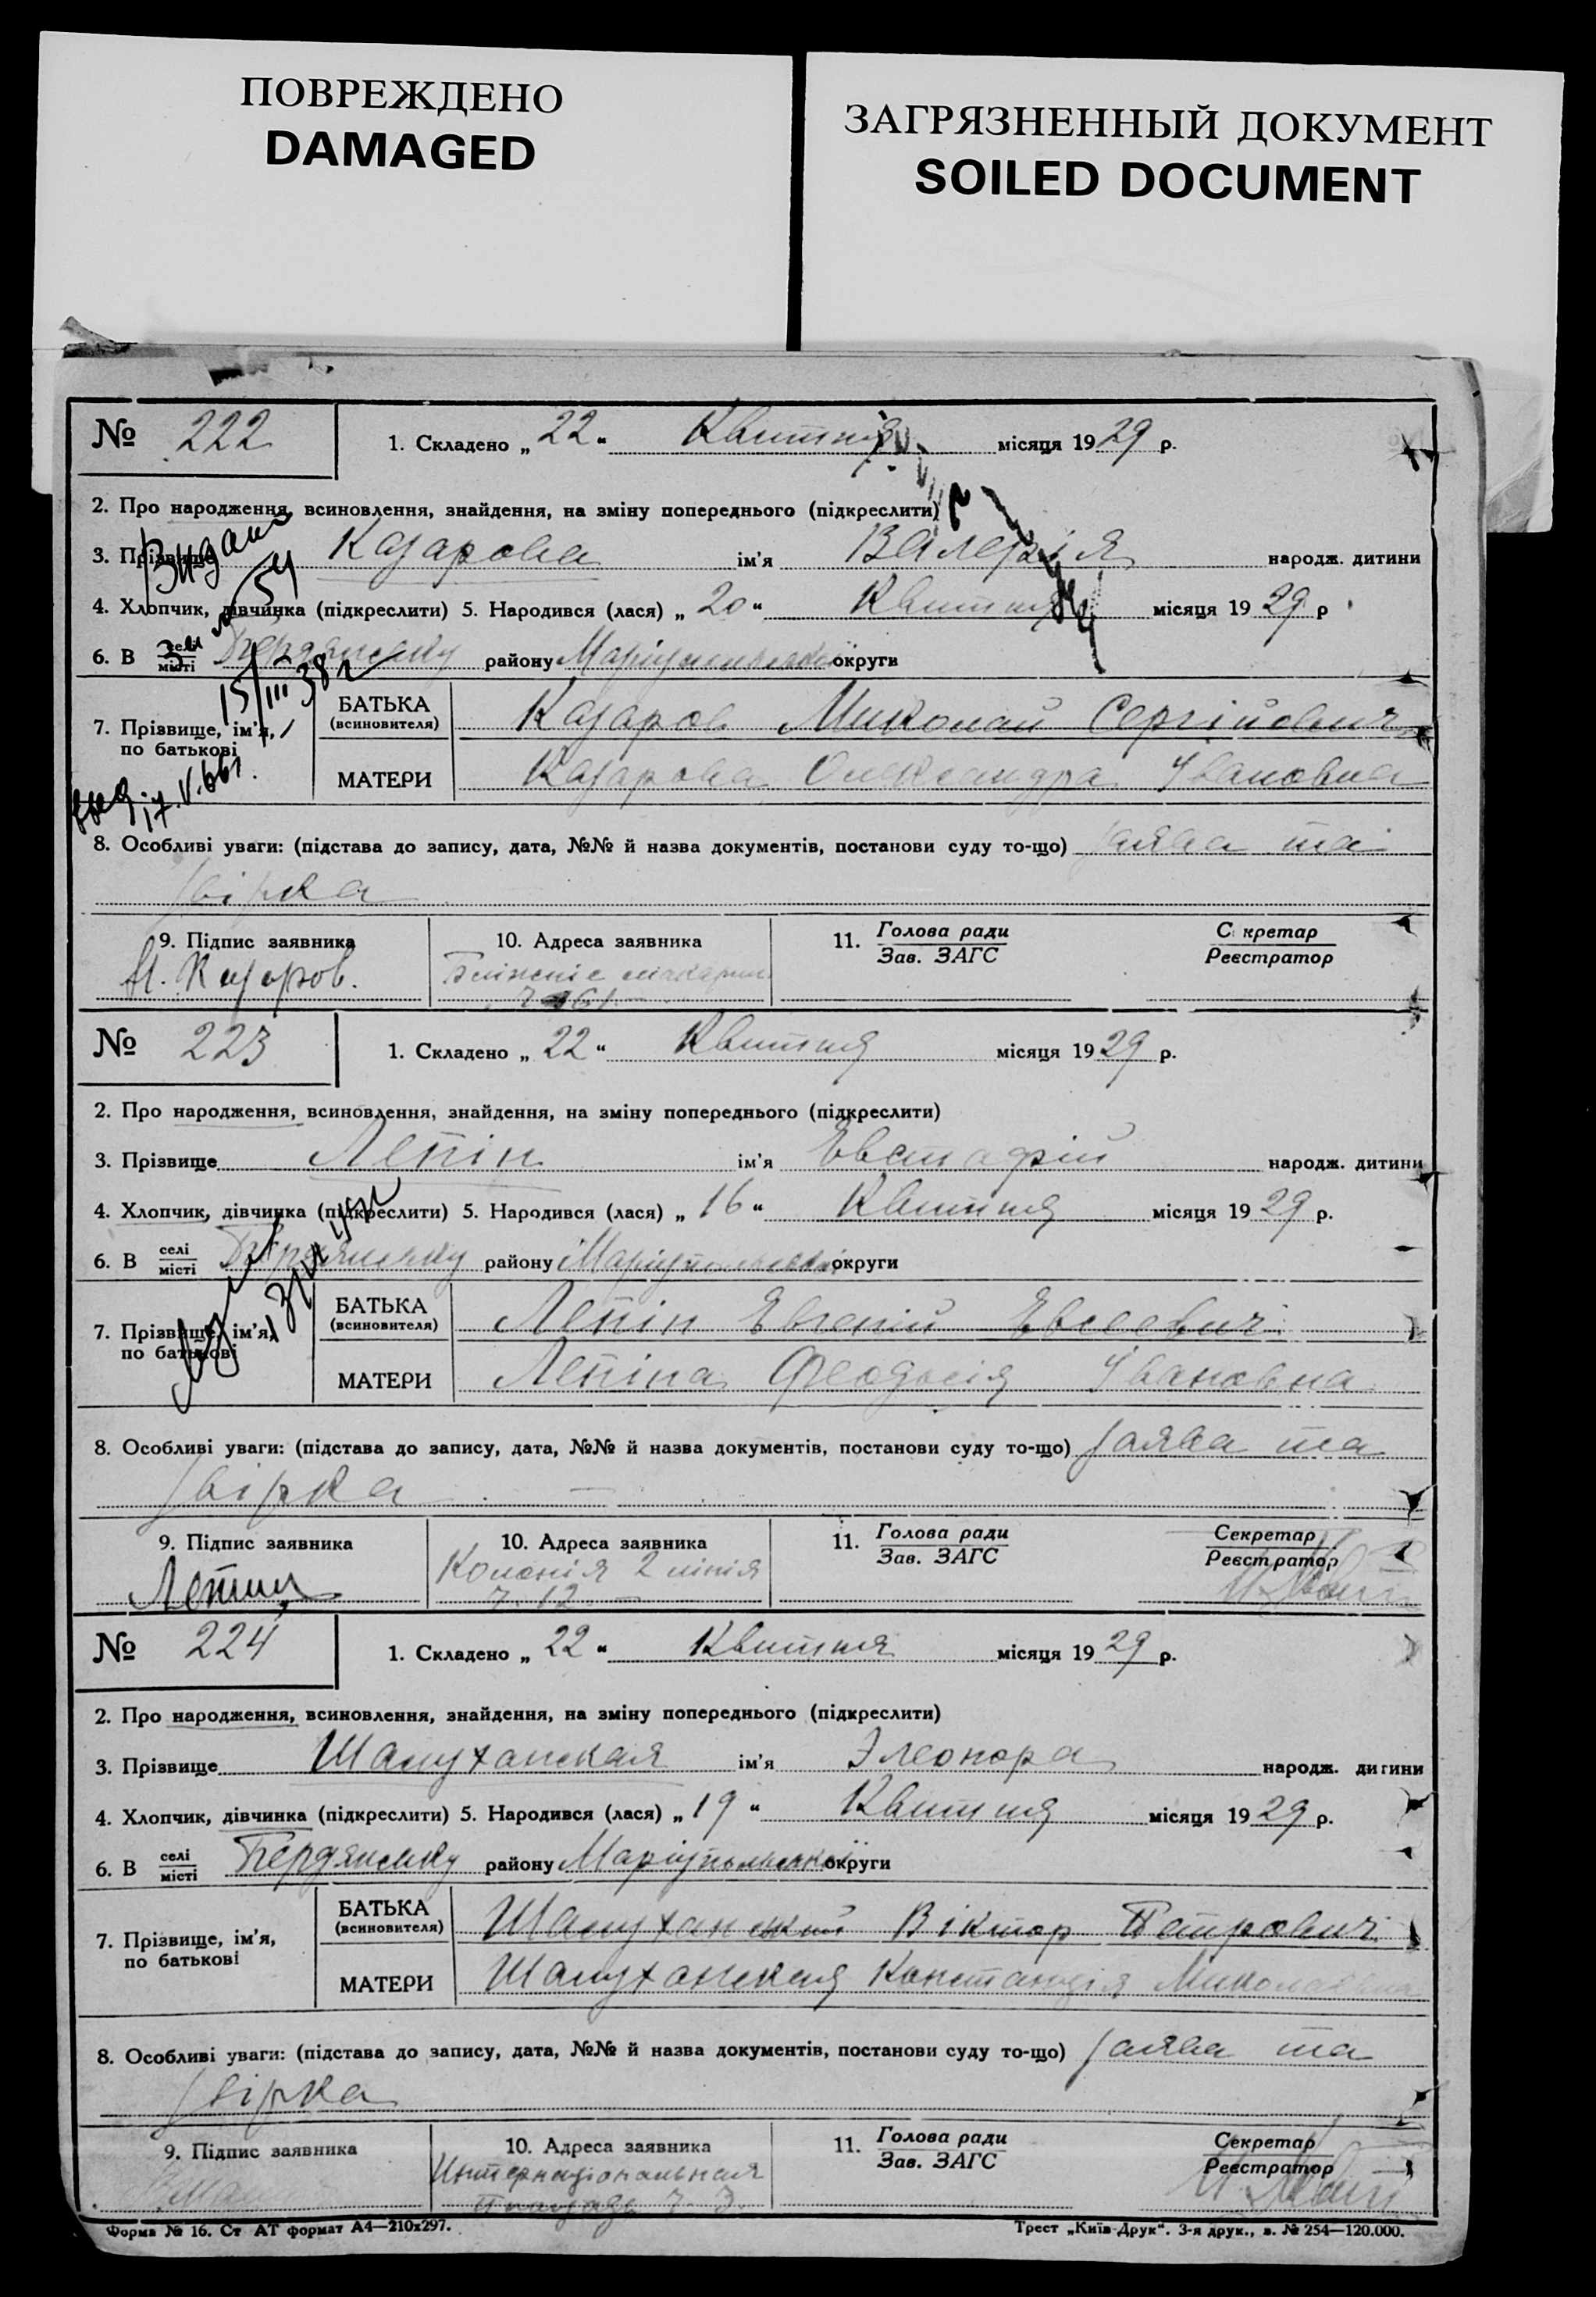 ПОВРЕЖДЕНО
DAMAGED
ЗАГРЯЗНЕННЫЙ ДОКУМЕНТ
SOILED DOCUMENT
№ 222 1. Складено „ 22 “ Квитня місяця 1929 р.
2. Про народження, всиновлення, знайдення, на зміну попереднього (підкреслити)
3. Прізвище Казарова ім'я Валерія народж. дитини
4. Хлопчик, дівчинка (підкреслити) 5. Народився (лася) „ 20 “ Квитня місяця 1929 р
6. В селі місті Бердянську району Маріупольської округи
Видано
15/III 38 г
выд. 17.V.66г.
7. Прізвище, ім'я, по батькові
БАТЬКА (всиновителя) Казаров Миколай Сергійович
МАТЕРИ Казарова Олександра Івановна
8. Особливі уваги: (підстава до запису, дата, №№ й назва документів, постанови суду то-що) заява та
звірка
9. Підпис заявника 10. Адреса заявника 11. Голова ради Зав. ЗАГС С кретар Реєстратор
Н. Казаров.
№ 223 1. Складено „ 22 “ Квитня місяця 1929 р.
2. Про народження, всиновлення, знайдення, на зміну попереднього (підкреслити)
3. Прізвище Лепін ім'я Евстафій народж. дитини
4. Хлопчик, дівчинка (підкреслити) 5. Народився (лася) „ 16 “ Квитня місяця 1929 р.
6. В селі місті Бердянську району Маріупольської округи
7. Прізвище, ім'я, по батькові
БАТЬКА (всиновителя) Лепін Евгеній Евсеевич
МАТЕРИ Лепіна Феодосія Івановна
8. Особливі уваги: (підстава до запису, дата, №№ й назва документів, постанови суду то-що) заява та
звірка
9. Підпис заявника 10. Адреса заявника 11. Голова ради Зав. ЗАГС Секретар Реєстратор
Лепин Колонія 2 лінія
ч. 12
№ 224 1. Складено „ 22 “ Квитня місяця 1929 р.
2. Про народження, всиновлення, знайдення, на зміну попереднього (підкреслити)
3. Прізвище Шамуханская ім'я Элеонора народж. дитини
4. Хлопчик, дівчинка (підкреслити) 5. Народився (лася) „ 19 “ Квитня місяця 1929 р.
6. В селі місті Бердянську району Маріупольської округи
7. Прізвище, ім'я, по батькові
БАТЬКА (всиновителя) Шамуханский Віктор Петрович
МАТЕРИ Шамуханская Миколаевна
8. Особливі уваги: (підстава до запису, дата, №№ й назва документів, постанови суду то-що) заява та
звірка
9. Підпис заявника 10. Адреса заявника 11. Голова ради Зав. ЗАГС Секретар Реєстратор
Интернаціональная
ч. 3.
Форма № 16. Ст АТ формат А4—210х297. Трест „Київ-Друк“. 3-я друк., з. № 254—120.000.